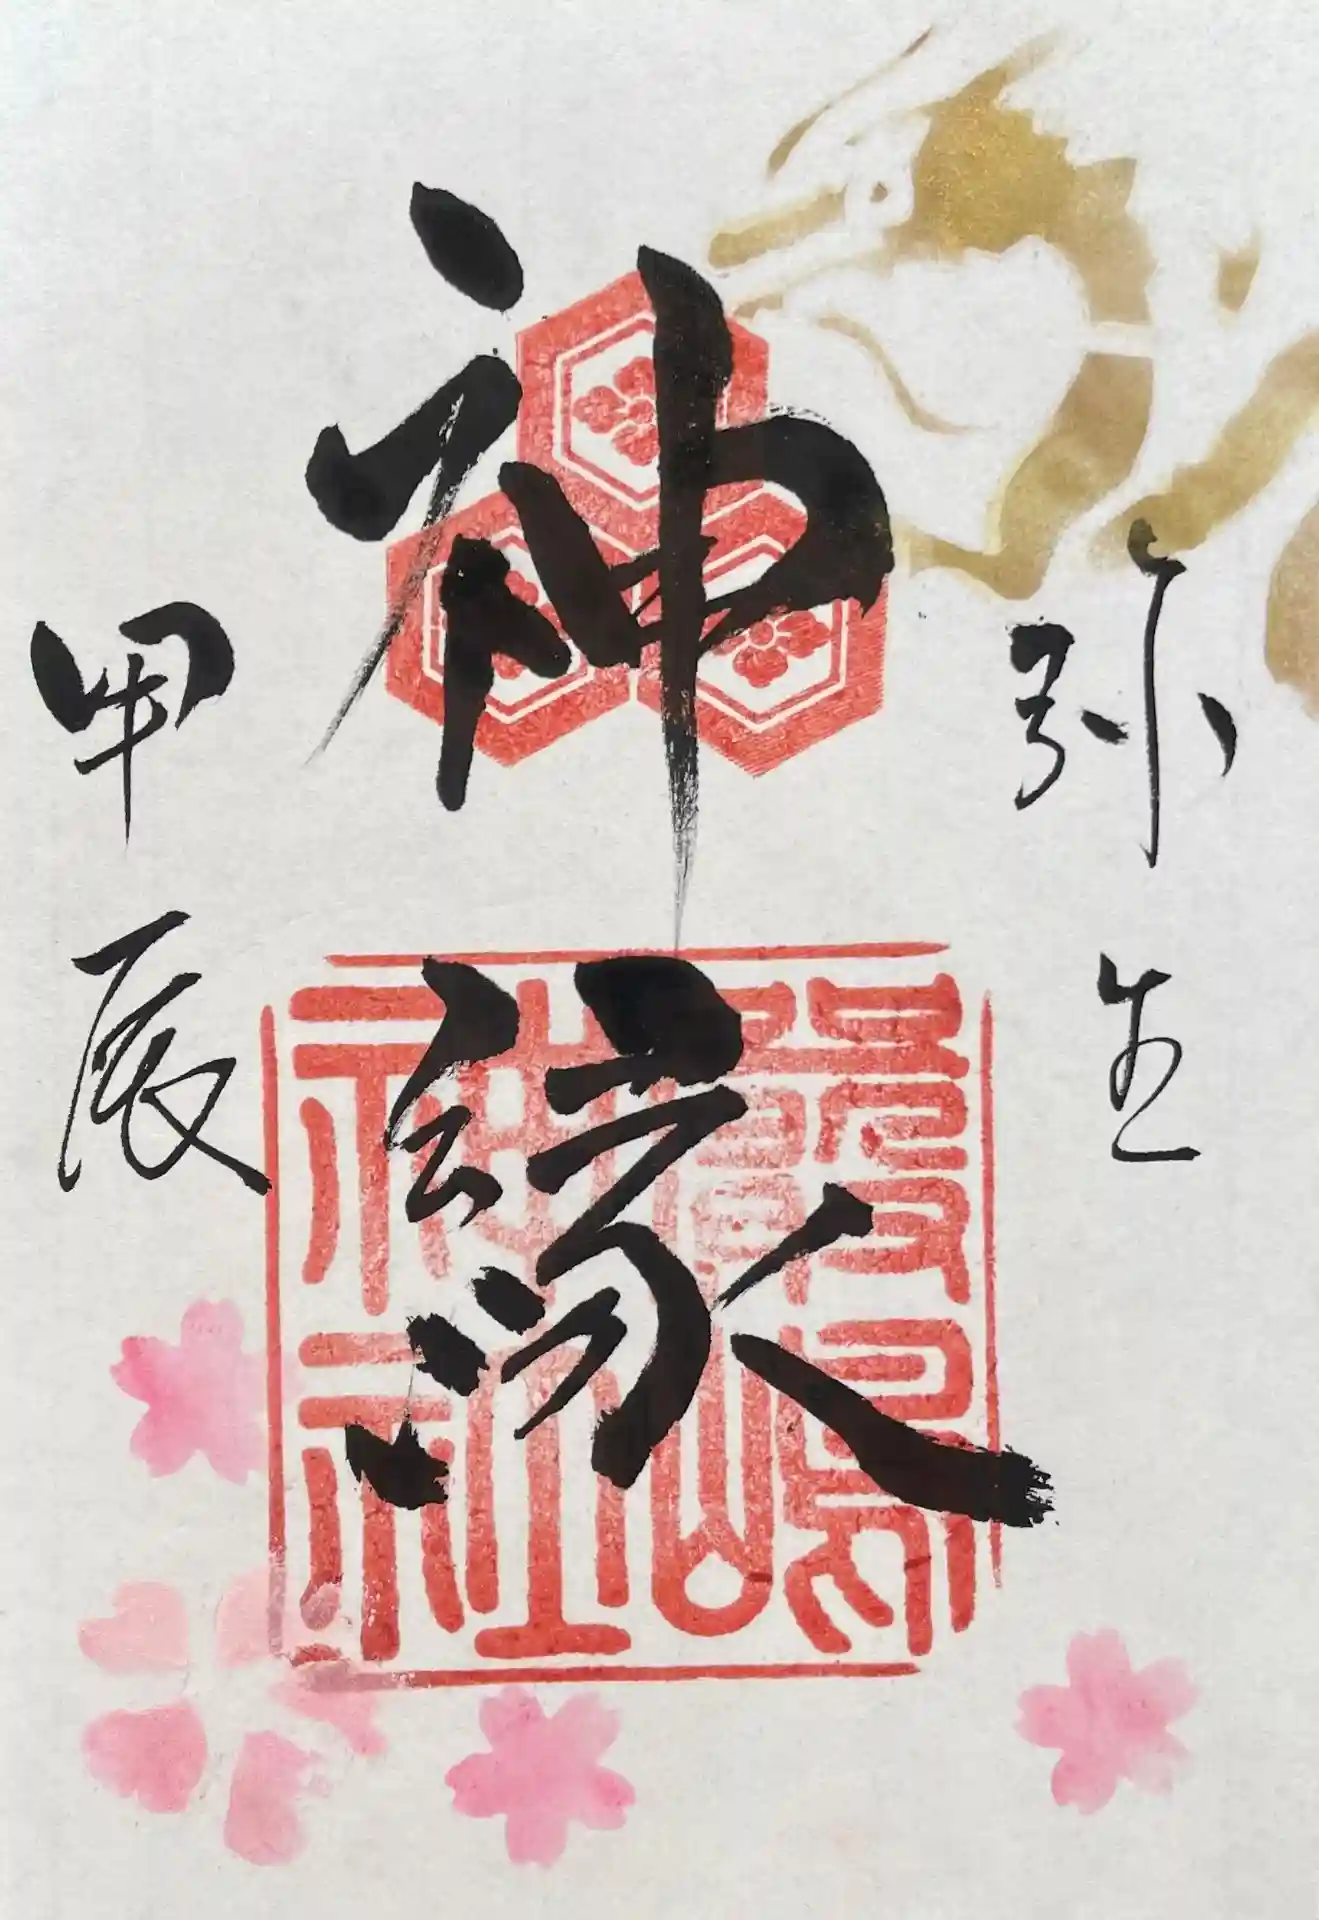 弥生
神縁
甲辰
厳島神社